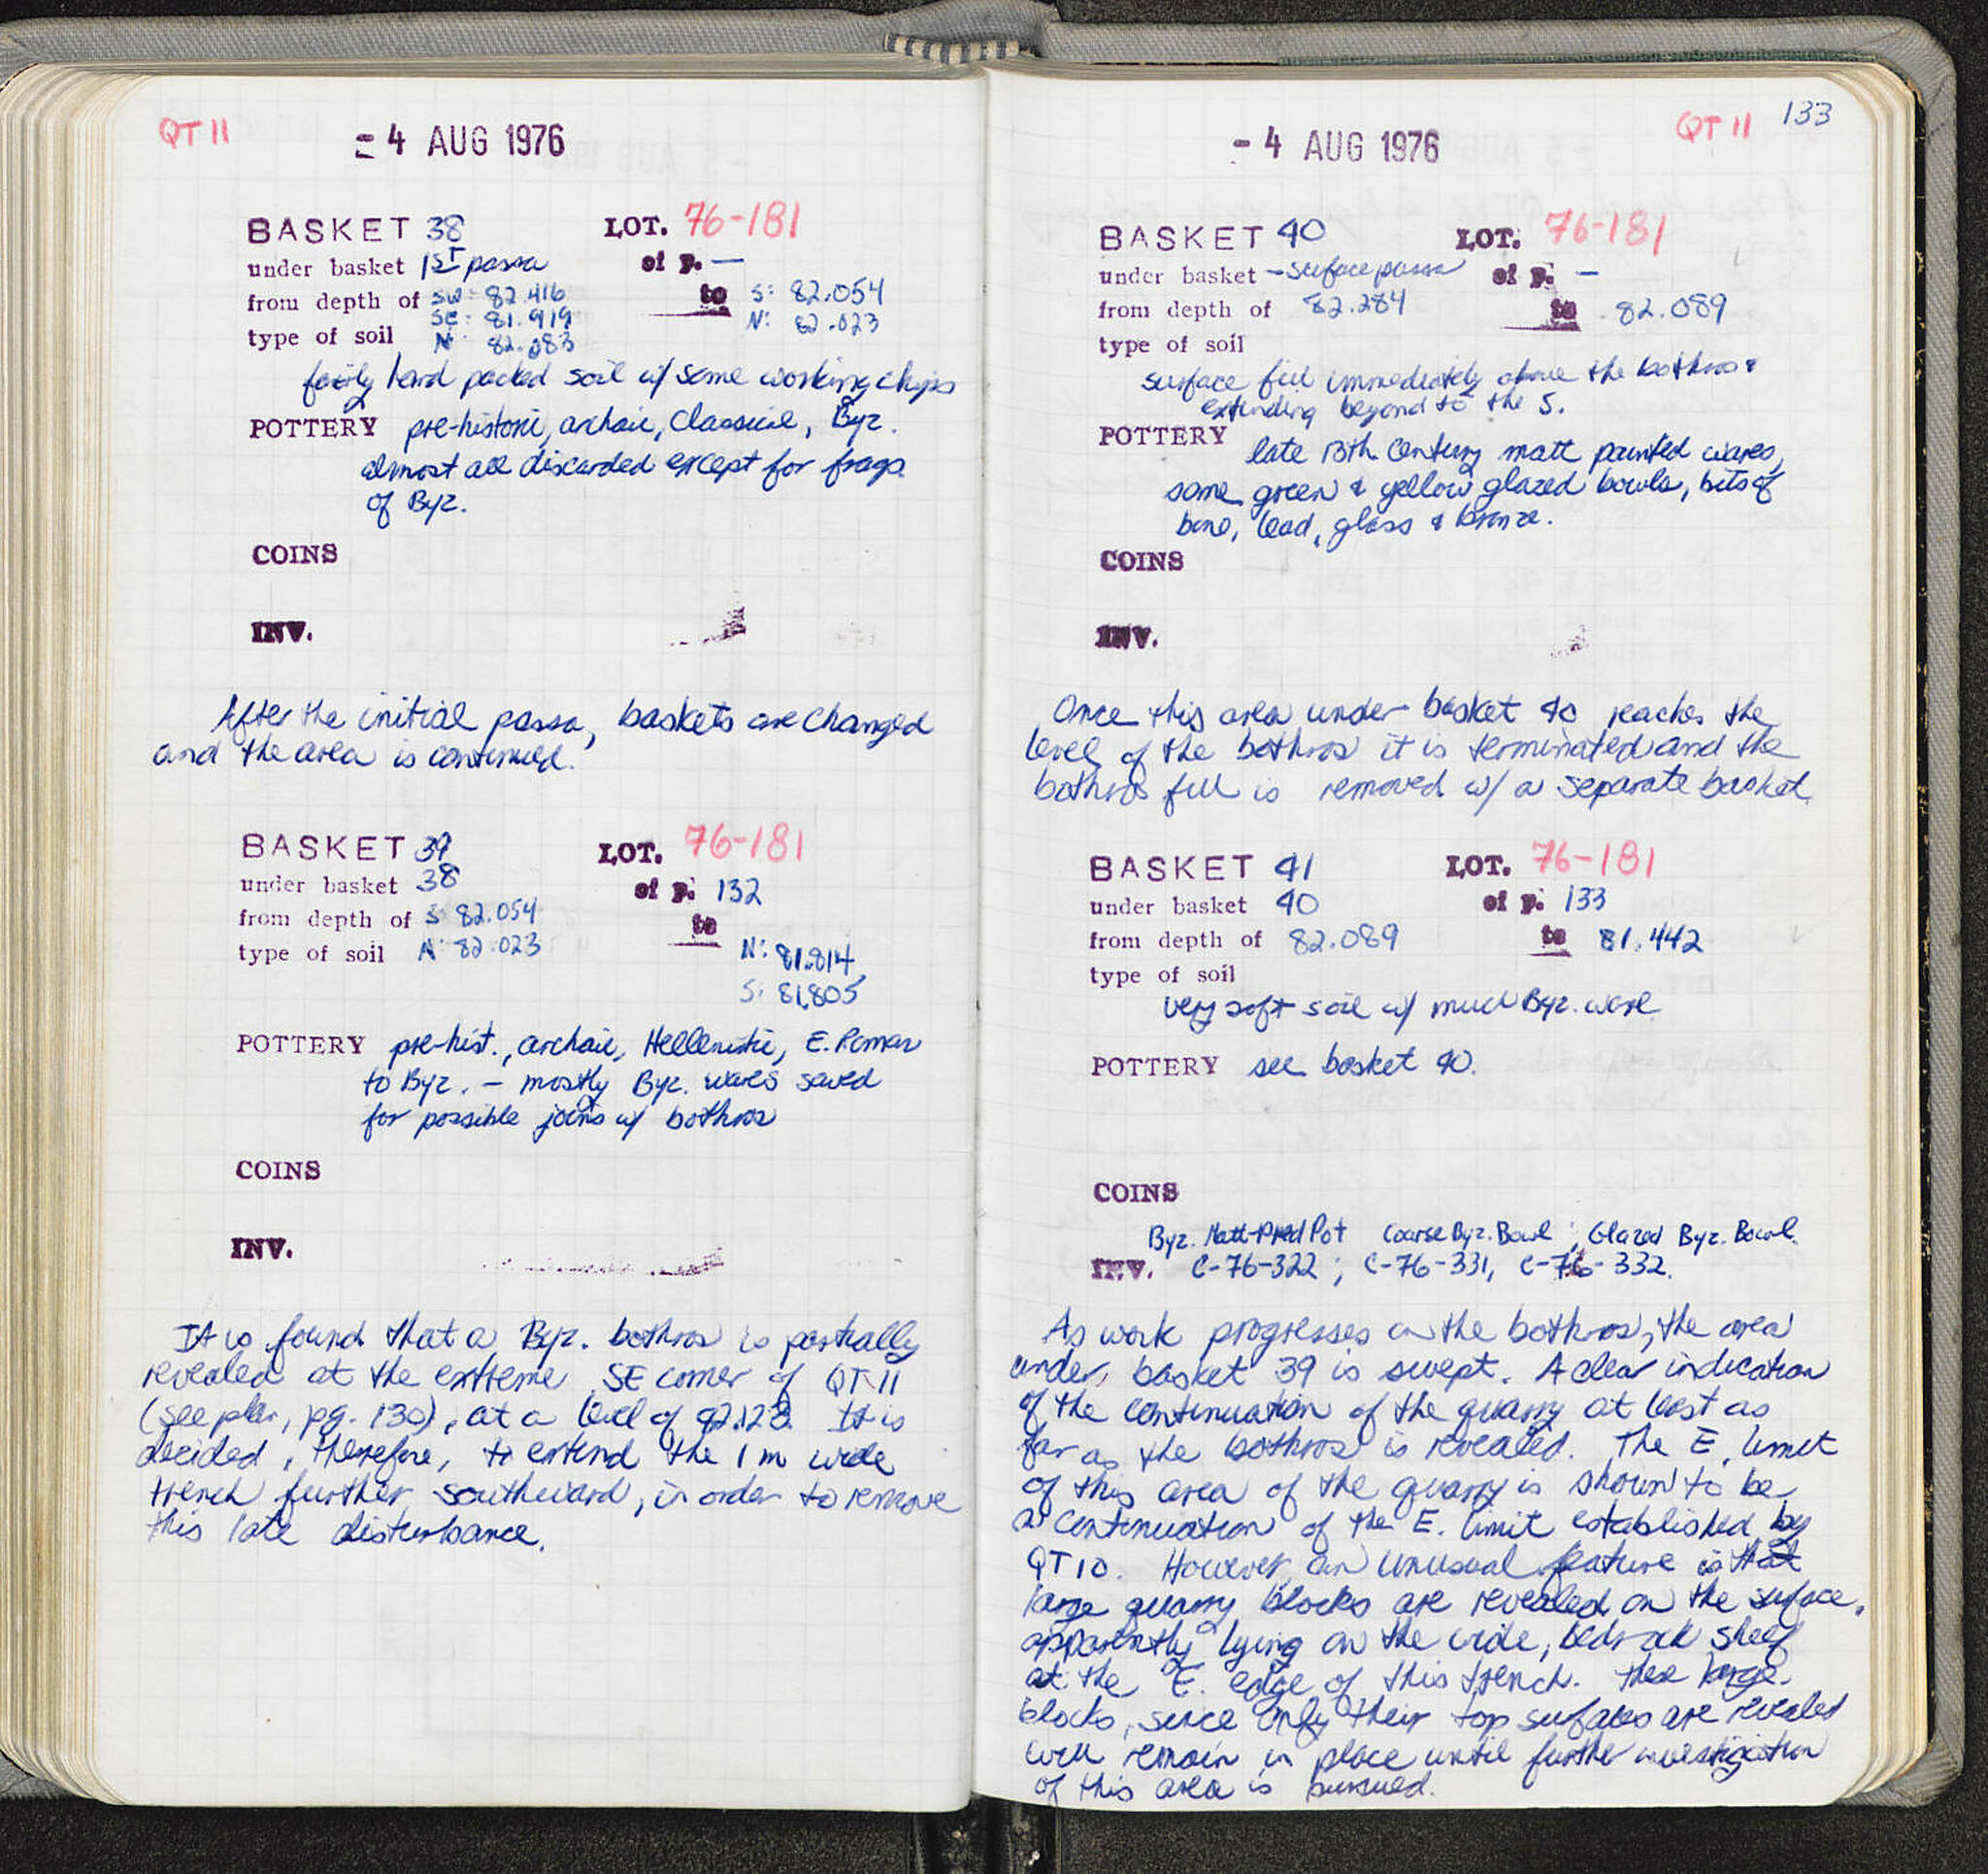 QT 11
- 4 AUG 1976
BASKET 38 LOT. 76-181
under basket 1ST passa of p. —
from depth of SW: 82.416 to S: 82.054
SE: 81.919 N: 82.023
type of soil N: 82.083
fairly hard packed soil w/ some working chips
POTTERY pre-historic, archaic, Classical, Byz.
almost all discarded except for frags
of Byz.
COINS
INV.
After the initial passa, baskets are changed
and the area is continued.
BASKET 39 LOT. 76-181
under basket 38 of p. 132
from depth of S 82.054 to
type of soil N: 82.023 N: 81.814
S: 81.805
POTTERY pre-hist., archaic, Hellenistic, E. Roman
to Byz. – mostly Byz. wares saved
for possible joins w/ bothros
COINS
INV.
It is found that a Byz. bothros is partially
revealed at the extreme SE corner of QT 11
(see plan, pg. 130), at a level of 82.128. It is
decided, therefore, to extend the 1 m wide
trench further southward, in order to remove
this late disturbance.
QT 11 133
- 4 AUG 1976
BASKET 40 LOT. 76-181
under basket – surface passa of p. —
from depth of 82.284 to 82.089
type of soil
surface fill immediately above the bothros &
extending beyond to the S.
POTTERY
late 13th century matt painted wares,
some green & yellow glazed bowls, bits of
bone, lead, glass & bronze.
COINS
INV.
Once this area under basket 40 reaches the
level of the bothros it is terminated and the
bothros fill is removed w/ a separate basket.
BASKET 41 LOT. 76-181
under basket 40 of p. 133
from depth of 82.089 to 81.442
type of soil
very soft soil w/ much Byz. ware
POTTERY see basket 40.
COINS
Byz. Matt-Ptd Pot Coarse Byz. Bowl ; Glazed Byz. Bowl.
INV. C-76-322 ; C-76-331, C-76-332.
As work progresses on the bothros, the area
under basket 39 is swept. A clear indication
of the continuation of the quarry at least as
far as the bothros is revealed. The E. limit
of this area of the quarry is shown to be
a continuation of the E. limit established by
QT 10. However, an unusual feature is that
large quarry blocks are revealed on the surface,
apparently lying on the wide, bedrock shelf
at the E. edge of this trench. These large
blocks, since only their top surfaces are revealed
will remain in place until further investigation
of this area is pursued.